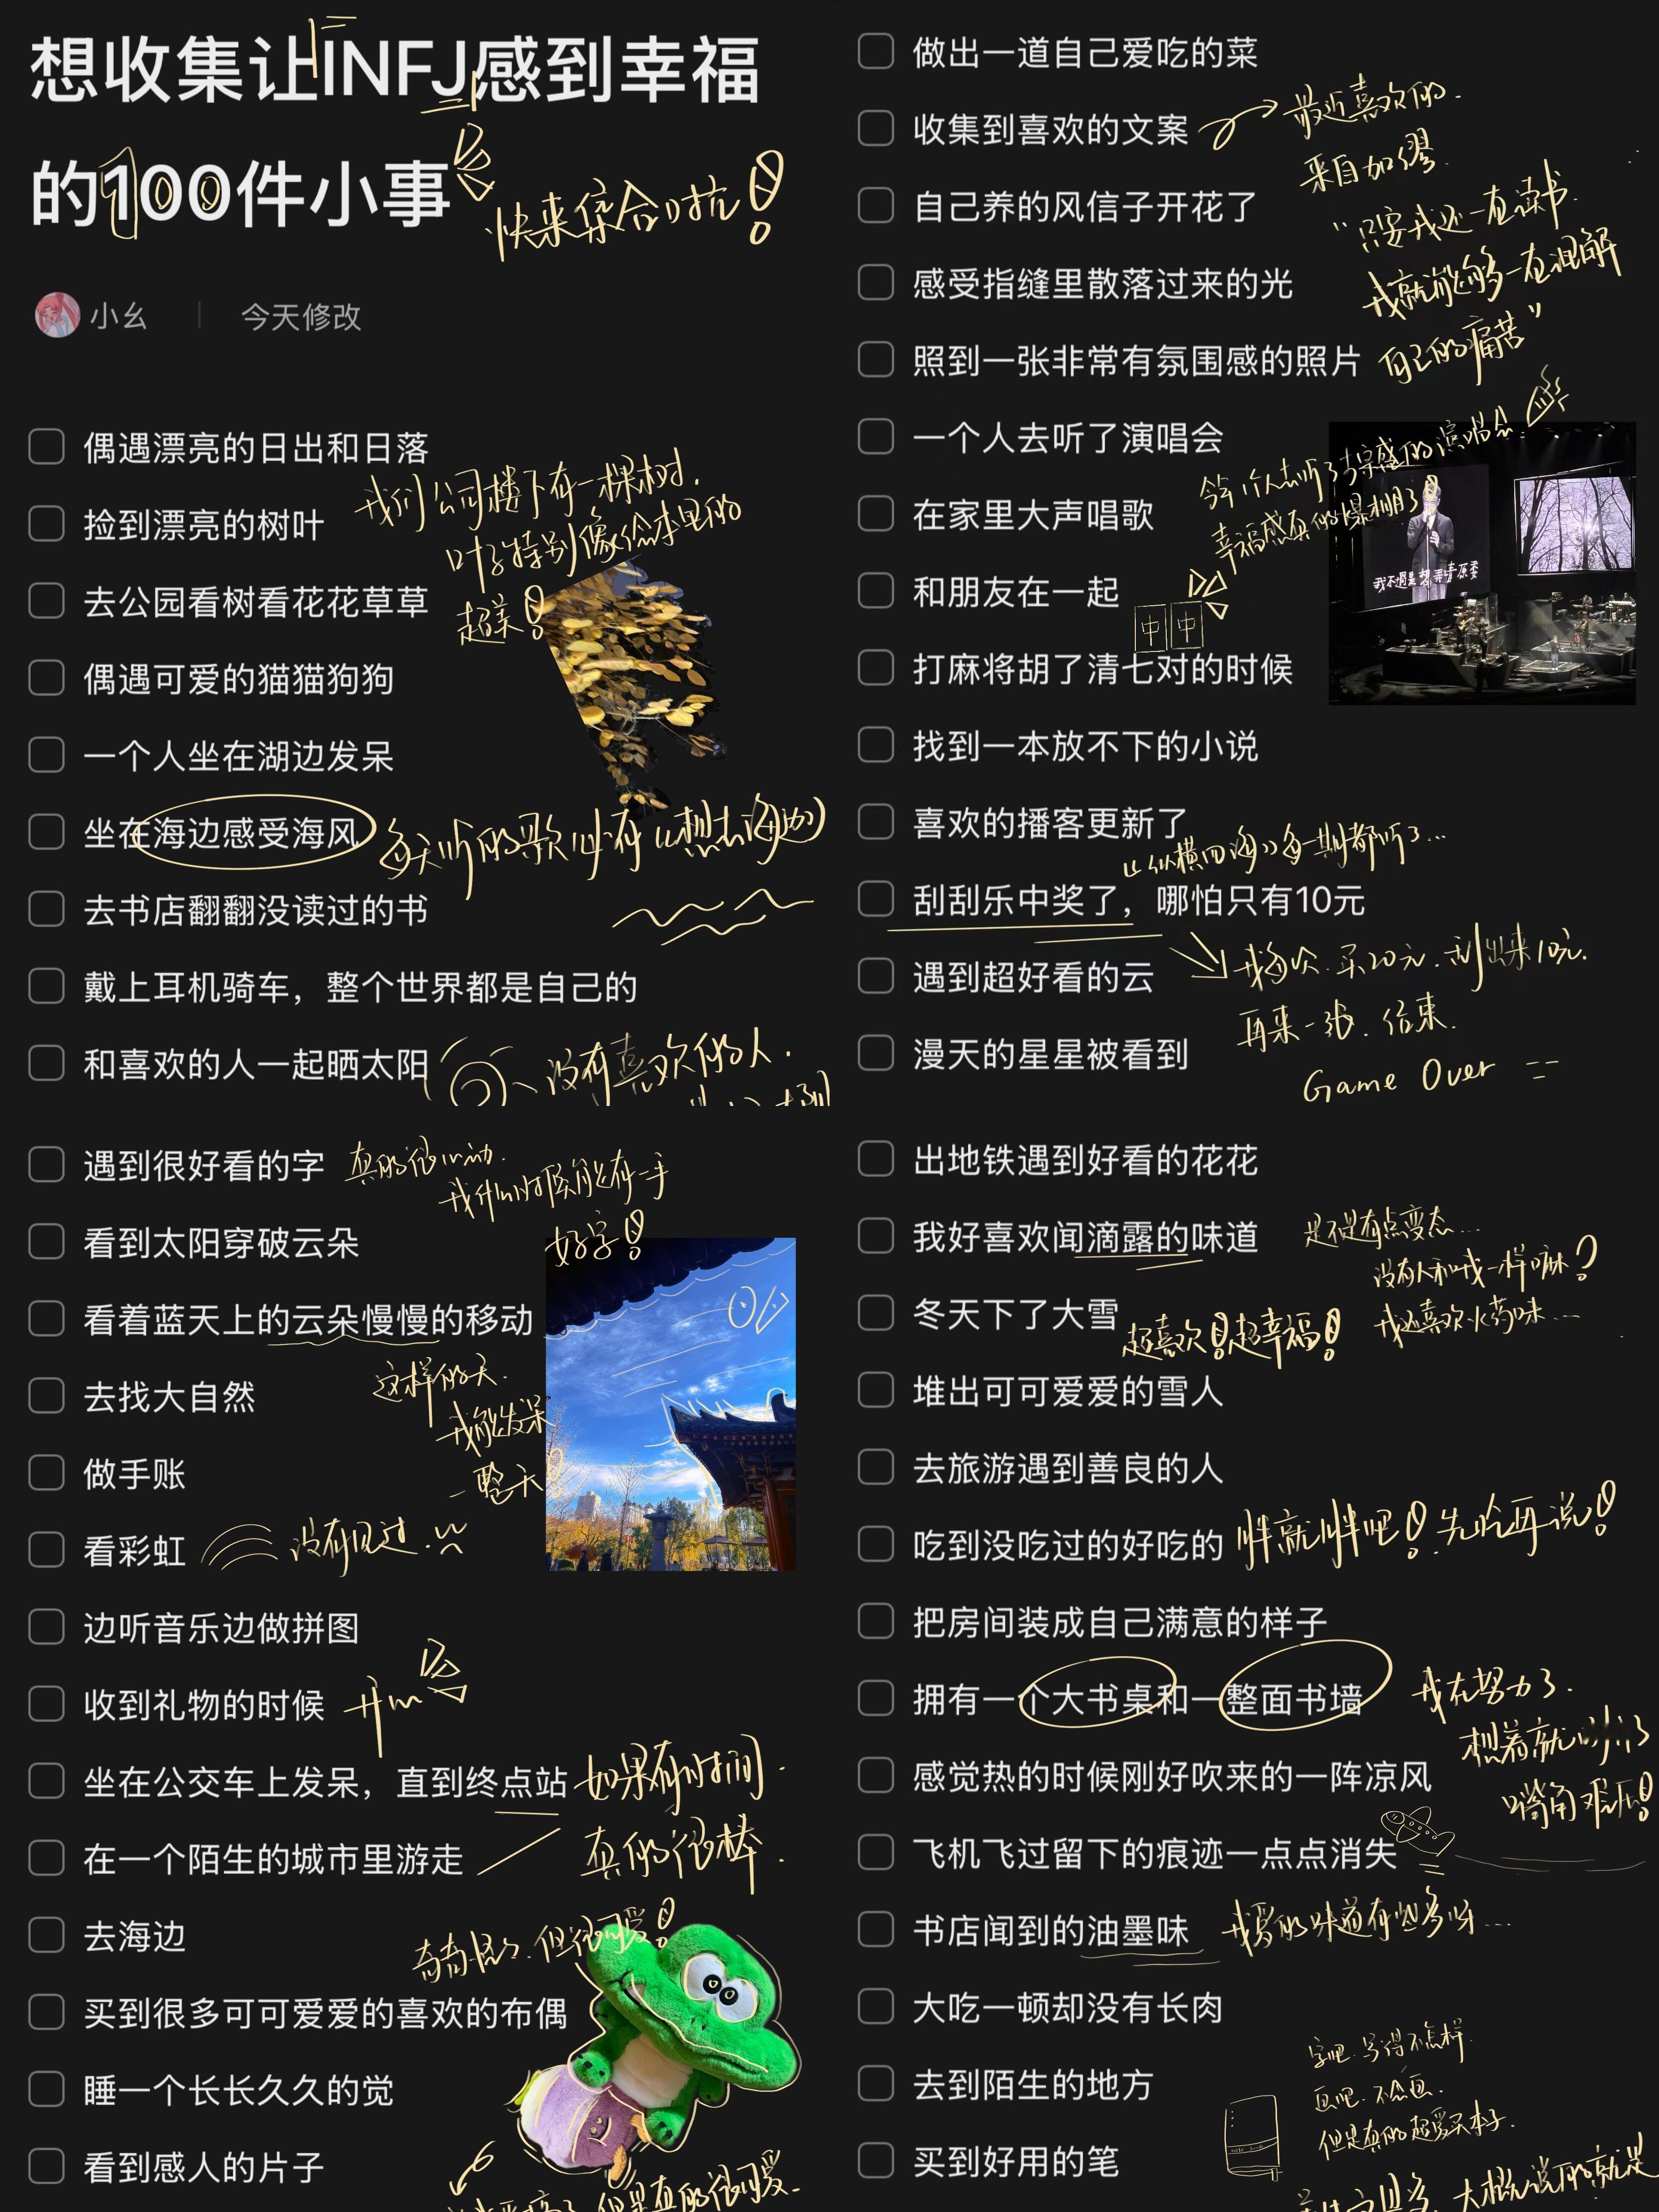 想收集让INFJ感到幸福
的100件小事
快来集合
小幺
今天修改
偶遇漂亮的日出和日落
捡到漂亮的树叶
我们公司楼下有一棵树.
叶子特别像绘本里的
超美!
去公园看树看花花草草
偶遇可爱的猫猫狗狗
一个人坐在湖边发呆
坐在海边感受海风
每天听的歌必有《想去海边》
去书店翻翻没读过的书
戴上耳机骑车，整个世界都是自己的
和喜欢的人一起晒太阳
没有喜欢的人.
做出一道自己爱吃的菜
收集到喜欢的文案
最近喜欢的.
来自加缪.
“只要我还一直读书.
我就能够一直理解
自己的痛苦”
自己养的风信子开花了
感受指缝里散落过来的光
照到一张非常有氛围感的照片
一个人去听了演唱会
今年1个人去听了李宗盛的演唱会
幸福感真的爆棚了
我不过是想弄清原委
在家里大声唱歌
和朋友在一起
中 中
打麻将胡了清七对的时候
找到一本放不下的小说
喜欢的播客更新了
《纵横四海》每一期都听了...
刮刮乐中奖了，哪怕只有10元
我每次.买20元.刮出来10元.
再来一张.结束.
Game Over
遇到超好看的云
漫天的星星被看到
遇到很好看的字
真的很心动.
我什么时候能有一手
好字!
看到太阳穿破云朵
看着蓝天上的云朵慢慢的移动
这样的天.
我能发呆
一整天
去找大自然
做手账
看彩虹
没有见过.
边听音乐边做拼图
收到礼物的时候
开心
坐在公交车上发呆，直到终点站
如果有时间.
真的很棒.
在一个陌生的城市里游走
去海边
奇奇怪怪.但很可爱!
买到很多可可爱爱的喜欢的布偶
睡一个长长久久的觉
看到感人的片子
但是真的很可爱.
出地铁遇到好看的花花
我好喜欢闻滴露的味道
是不是有点变态...
没有人和我一样嘛?
我还喜欢火药味...
冬天下了大雪
超喜欢!超幸福!
堆出可可爱爱的雪人
去旅游遇到善良的人
吃到没吃过的好吃的
胖就胖吧!.先吃再说!
把房间装成自己满意的样子
拥有一个大书桌和一整面书墙
我在努力了.
想着就
嘴角难压!
感觉热的时候刚好吹来的一阵凉风
飞机飞过留下的痕迹一点点消失
书店闻到的油墨味
我爱的味道有些多呀...
大吃一顿却没有长肉
去到陌生的地方
字吧.写得不怎样.
画吧.不会画.
但是真的超爱买本子.
买到好用的笔
大概说的就是